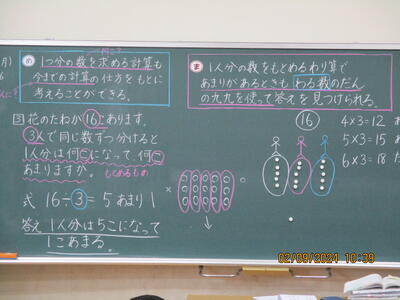 め 1つ分の数を求める計算も
今までの計算の仕方をもとに
考えることができる。
③ 花のたねが16こあります。
3人で同じ数ずつ分けると
1人分は何こになって、何こ
あまりますか。
もとめるもの
式 16÷3=5あまり1
答え 1人分は5こになって
1こあまる。
ま 1人分の数をもとめるわり算で
あまりがあるときも わる数のだん
の九九を使って答えを見つけられる。
16
4×3=12
5×3=15
6×3=18
02/09/2024 10:39